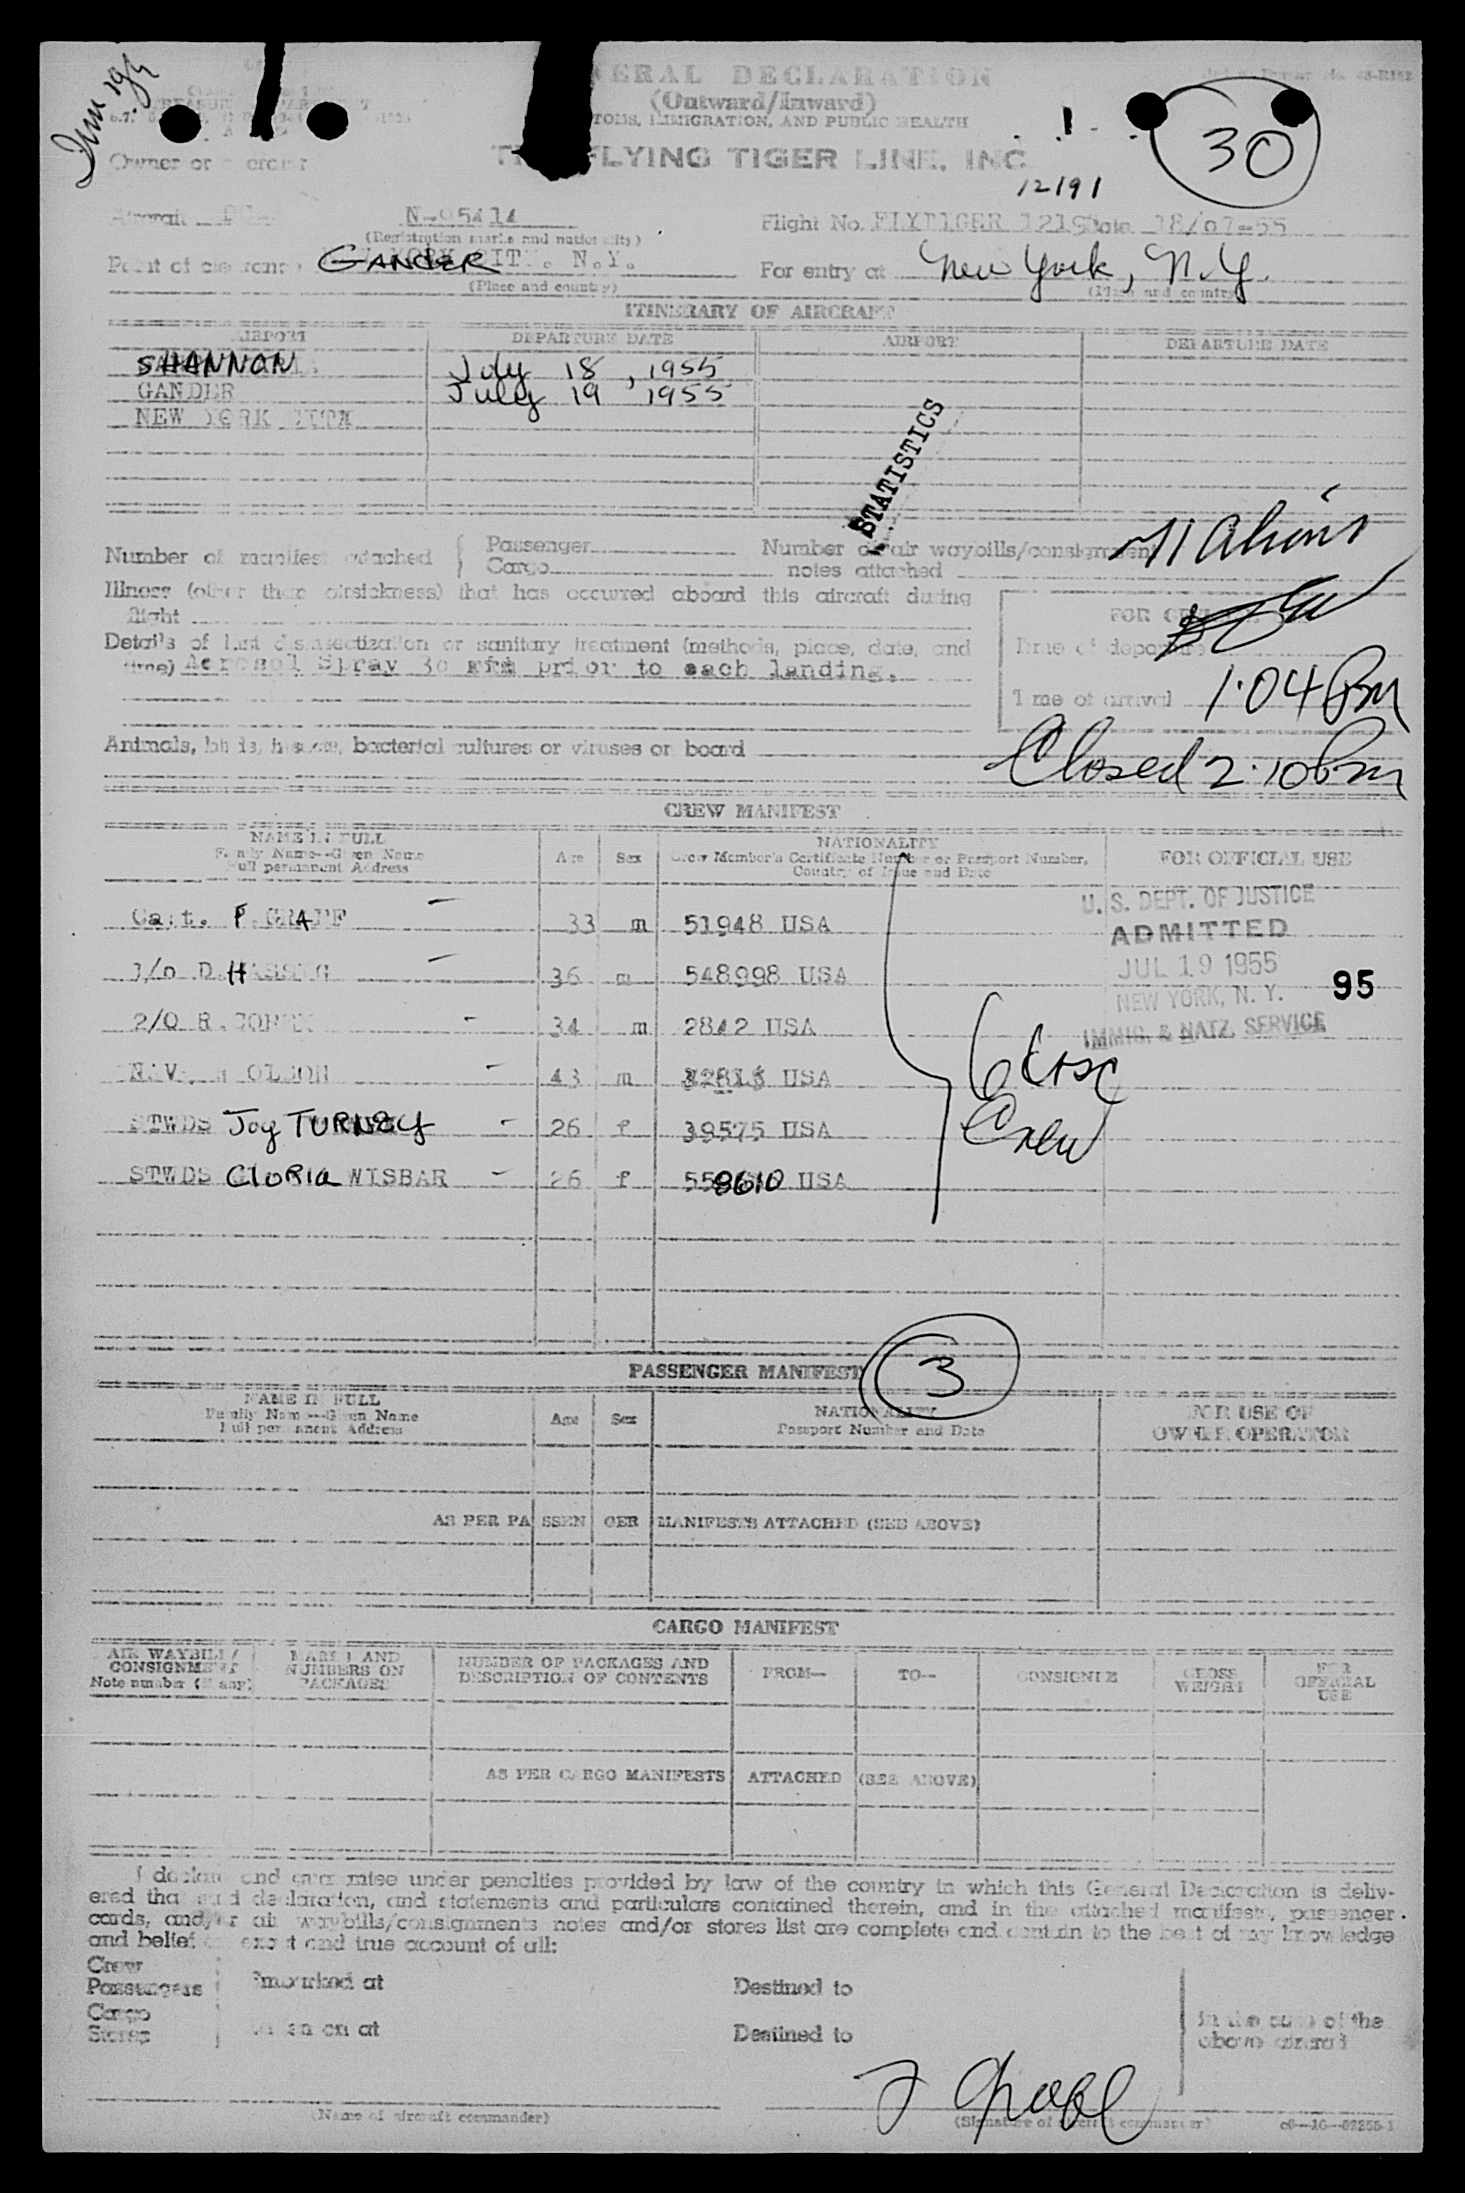 GENERAL DECLARATION
(Outward/Inward)
CUSTOMS, IMMIGRATION, AND PUBLIC HEALTH
30
Owner or operator
THE FLYING TIGER LINE, INC
12191
Aircraft N-95414 Flight No. FLYTIGER 1219 Date 18/07-55
(Registration marks and nationality)
Point of clearance GANDER N.Y. For entry at New York, N.Y.
(Place and country) (Place and country)
ITINERARY OF AIRCRAFT
AIRPORT DEPARTURE DATE AIRPORT DEPARTURE DATE
SHANNON July 18, 1955
GANDER July 19 1955
NEW YORK
STATISTICS
11 Aliens
Number of manifest attached Passenger Number of air waybills/consignment
Cargo notes attached
Illness (other than airsickness) that has occurred aboard this aircraft during
flight
FOR OFFICIAL
Details of last disinsectization or sanitary treatment (methods, place, date, and
time) Aerosol Spray 30 min prior to each landing.
Time of departure
Time of arrival 1:04 Pm
Animals, birds, insects, bacterial cultures or viruses on board
Closed 2:10 Pm
CREW MANIFEST
NAME IN FULL
Family Name--Given Name
Full permanent Address
Age Sex
NATIONALITY
Crew Member's Certificate Number or Passport Number,
Country of Issue and Date
FOR OFFICIAL USE
Capt. F. GRAFF 33 m 51948 USA
U. S. DEPT. OF JUSTICE
ADMITTED
JUL 19 1955
NEW YORK, N. Y.
IMMIG. & NATZ. SERVICE
95
36 m 548998 USA
2/O R. 34 m 2842 USA
NAV. OLSON 43 m USA
STWDS Joy TURNEY 26 f 39575 USA
STWDS GLORIA WISBAR 26 f 558610 USA
6 Crew
PASSENGER MANIFEST
3
NAME IN FULL
Family Name--Given Name
Full permanent Address
Age Sex
NATIONALITY
Passport Number and Date
FOR USE OF
OWNER OPERATOR
AS PER PASSENGER MANIFESTS ATTACHED (SEE ABOVE)
CARGO MANIFEST
AIR WAYBILL/
CONSIGNMENT
Note number (if any)
MARKS AND
NUMBERS ON
PACKAGES
NUMBER OF PACKAGES AND
DESCRIPTION OF CONTENTS
FROM-- TO-- CONSIGNEE
GROSS
WEIGHT
FOR
OFFICIAL
USE
AS PER CARGO MANIFESTS ATTACHED (SEE ABOVE)
I declare and guarantee under penalties provided by law of the country in which this General Declaration is deliv-
ered that said declaration, and statements and particulars contained therein, and in the attached manifests, passenger
cards, and/or air waybills/consignments notes and/or stores list are complete and contain to the best of my knowledge
and belief exact and true account of all:
Crew
Passengers Embarked at Destined to
Cargo
Stores taken on at Destined to
in the case of the
above aircraft
(Name of aircraft commander) (Signature of aircraft commander)